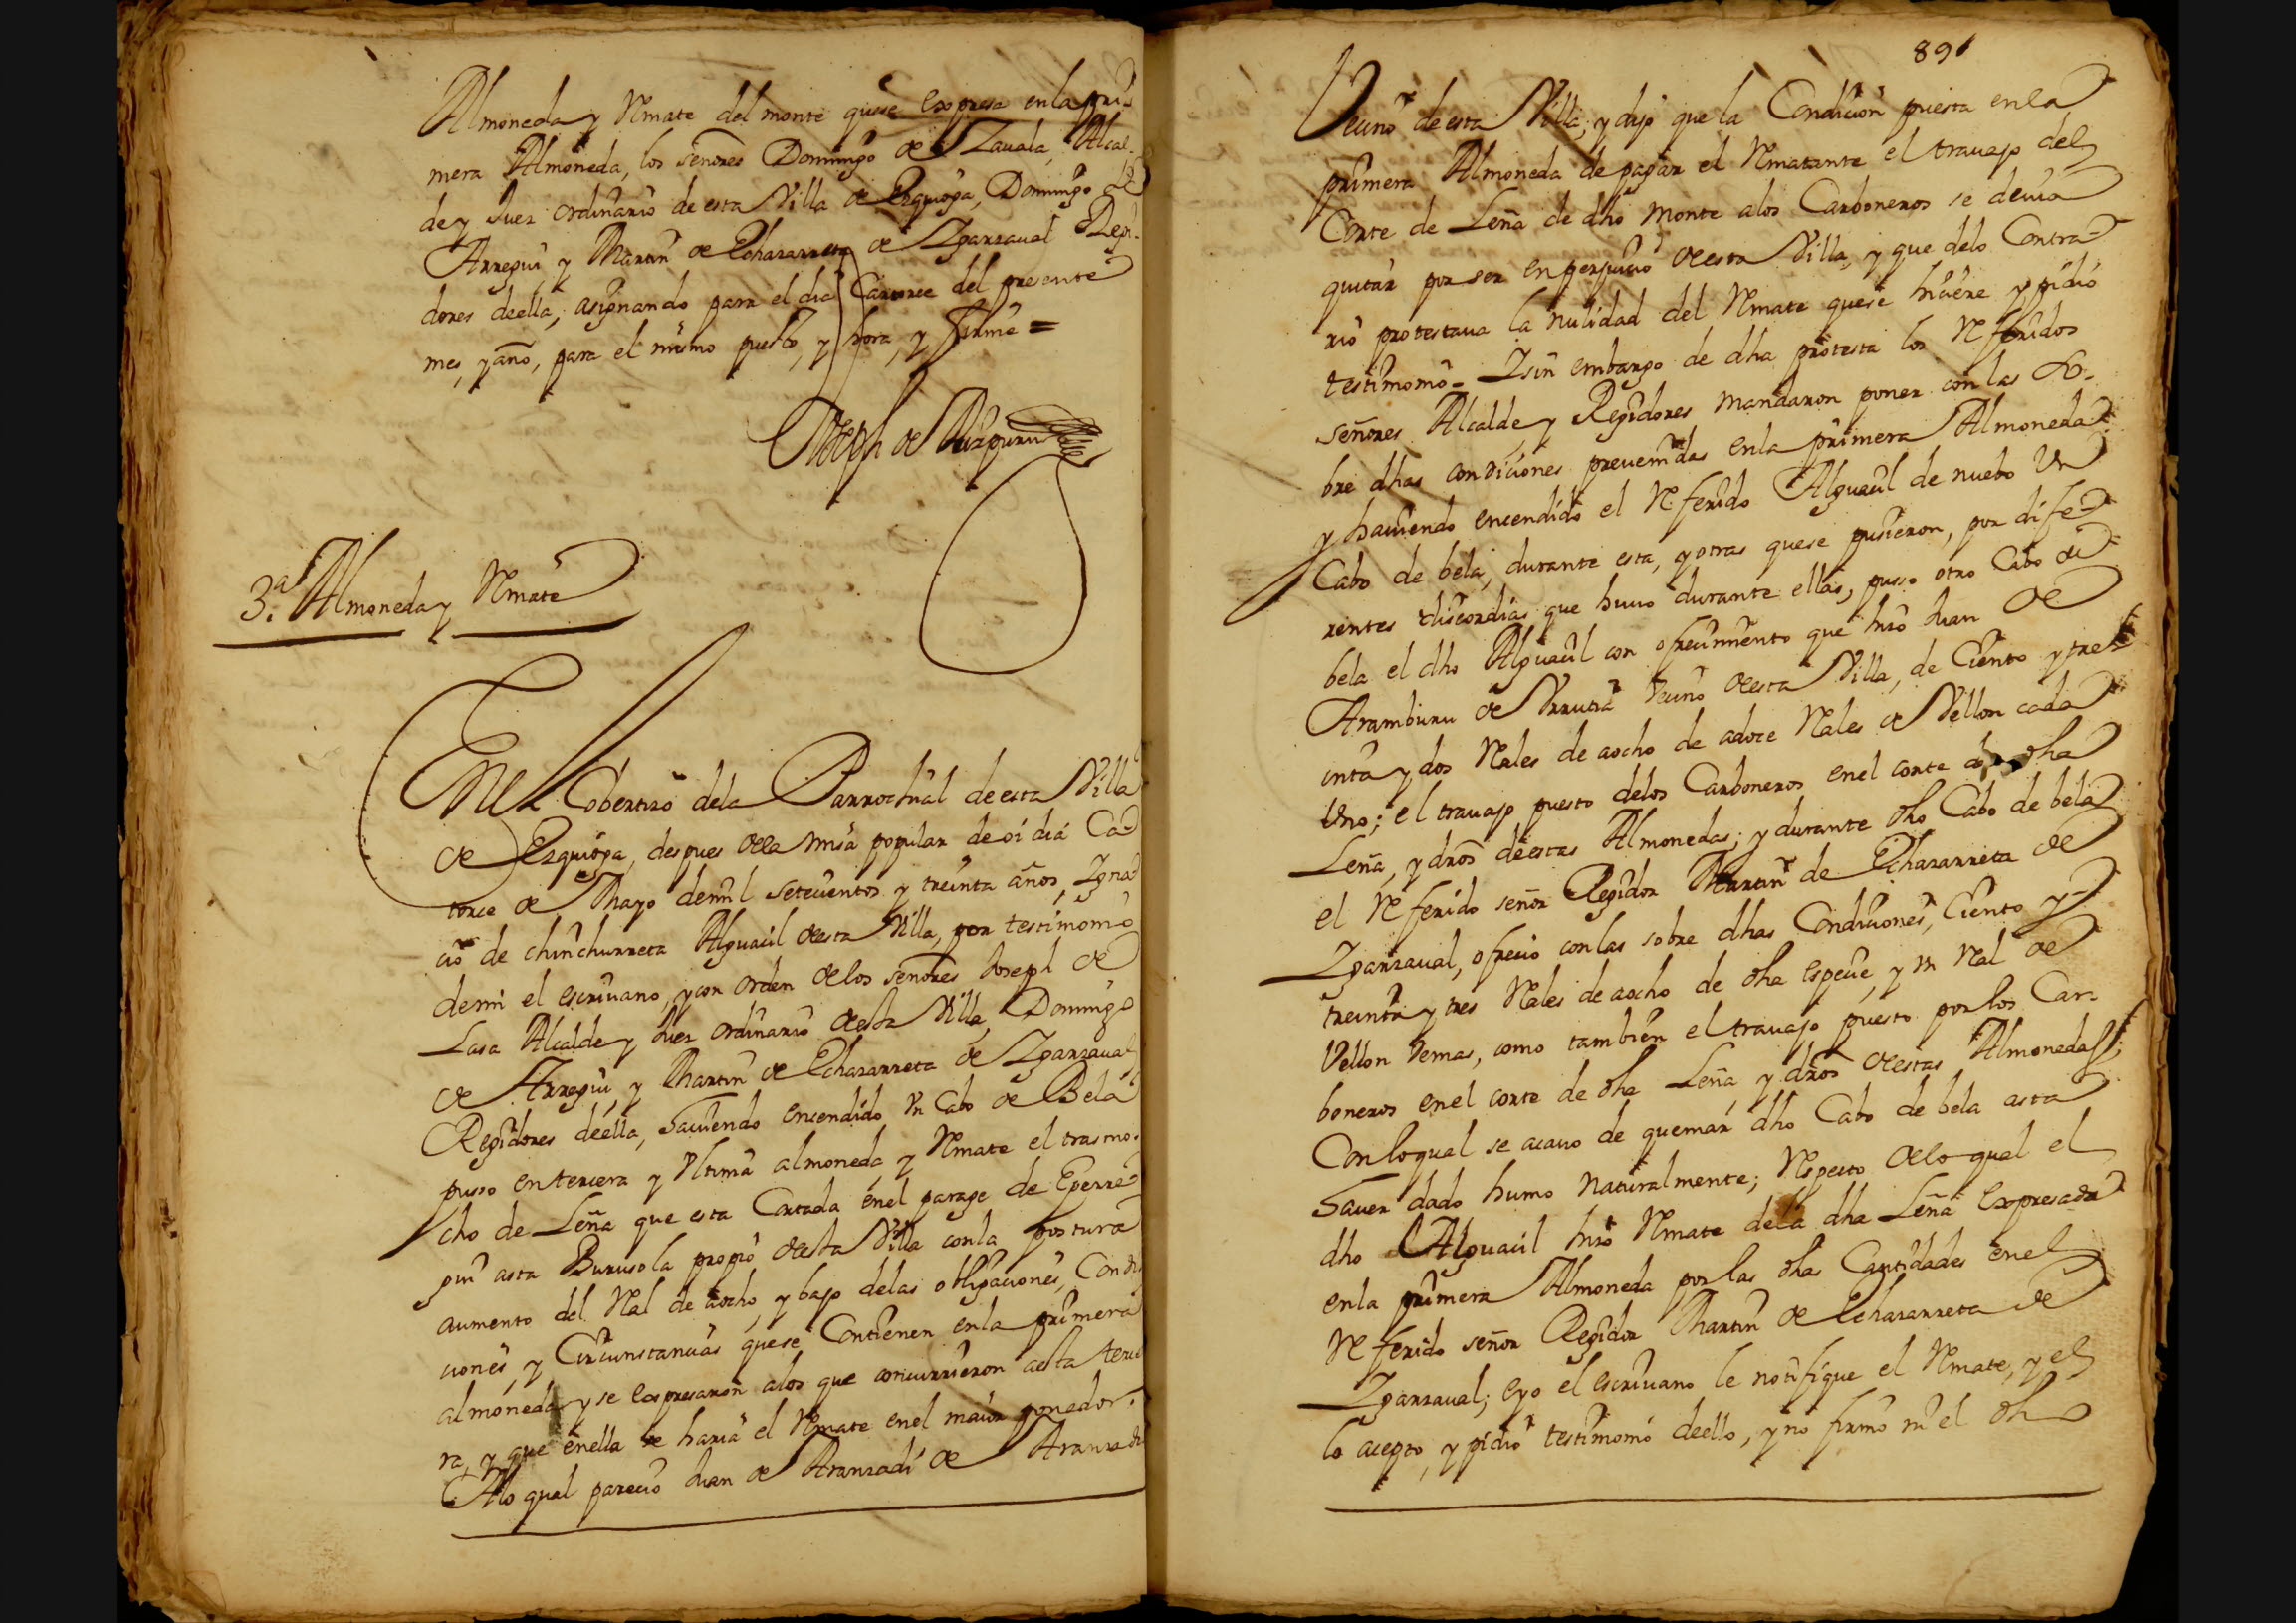 Almoneda y Rmate del monte quese expresa enla pri-
mera Almoneda, los señores Domingo de Zauala, Alcal-
de y Juez ordinario de esta Villa de Ezquioga, Domingo de
Arregui y Martin de Echazarreta de Ygarzaual Regi-
dores deella, asignando para el dia Catorce del presente
mes, y año, para el mismo puesto, y hora, y firme =
Joseph de Aizpuru
3.ª Almoneda y Rmate
En el Cobertizo dela Parrochial de esta Villa
de Ezquioga, despues dela misa popular de oi dia Ca-
torce de Mayo demil setecientos y treinta años, Igna-
cio de chinchurreta Alguacil desta Villa, por testimonio
demi el escriuano, y con orden delos señores Joseph de
Lasa Alcalde y Juez ordinario desta Villa, Domingo
de Arregui, y Martin de Echazarreta de Ygarzaual
Regidores deella, hauiendo encendido Vn Cabo de Bela
pusso entercera y Vltima almoneda y Rmate el trasmo-
cho de Leña que esta Cortada enel parage de Eperre-
gui asta Burusola propio desta Villa conla postura
aumento del Ral de aocho, y bajo delas obligaciones, Condi
ciones, y Circunstancias quese Contienen enla primera
almoneda y se expresaron alos que concurrieron aesta terce
ra, y que enella se haria el Rmate enel maior ponedor.
Alo qual parecio Juan de Aranzadi de Aranzadi
891
Vecino de esta Villa; y dijo que la Condicion puesta enla
primera Almoneda de pagar el Rmatante el trauajo del
Corte de Leña de dho monte alos Carboneros se deuia
quitar por ser en perjuicio desta Villa, y que delo Contra-
rio protestaua la nulidad del Rmate quese hiciere y pidio
testimonio. Y sin embargo de dha protesta los Rferidos
señores Alcalde y Regidores mandaron poner con las so-
bre dhas condiciones preuenidas enla primera Almoneda
y hauiendo encendido el Rferido Alguacil de nuebo Vn
Cabo de bela, durante esta, y otras quese pusieron, por dife-
rentes discordias que huuo durante ellas, pusso otro Cabo de
bela el dho Alguacil con ofrecimiento que hizo Juan de
Aramburu de Vrrutia Vecino desta Villa, de Ciento y tre
inta y dos Rales de aocho de adoce Rales de Vellon cada
Vno; el trauajo puesto delos Carboneros enel corte de dha
Leña, y dros deestas Almonedas; y durante dho Cabo de bela
el Rferido señor Regidor Martin de Echazarreta de
Ygarzaual, ofrecio con las sobre dhas Condiciones, Ciento y
treinta y tres Rales de aocho de dha especie, y Vn Ral de
Vellon Vemas, como tambien el trauajo puesto por los Car-
boneros enel corte de dha Leña, y dros destas Almonedas;
Con loqual se acauo de quemar dho Cabo de bela asta
hauer dado humo naturalmente; Respecto delo qual el
dho Alguacil hizo Rmate dela dha Leña expresada
enla primera Almoneda por las dhas Cantidades enel
Rferido señor Regidor Martin de Echazarreta de
Ygarzaual; e yo el escriuano le notifique el Rmate, y el
lo acepto, y pidio testimonio deello, y no firmo ni el dho